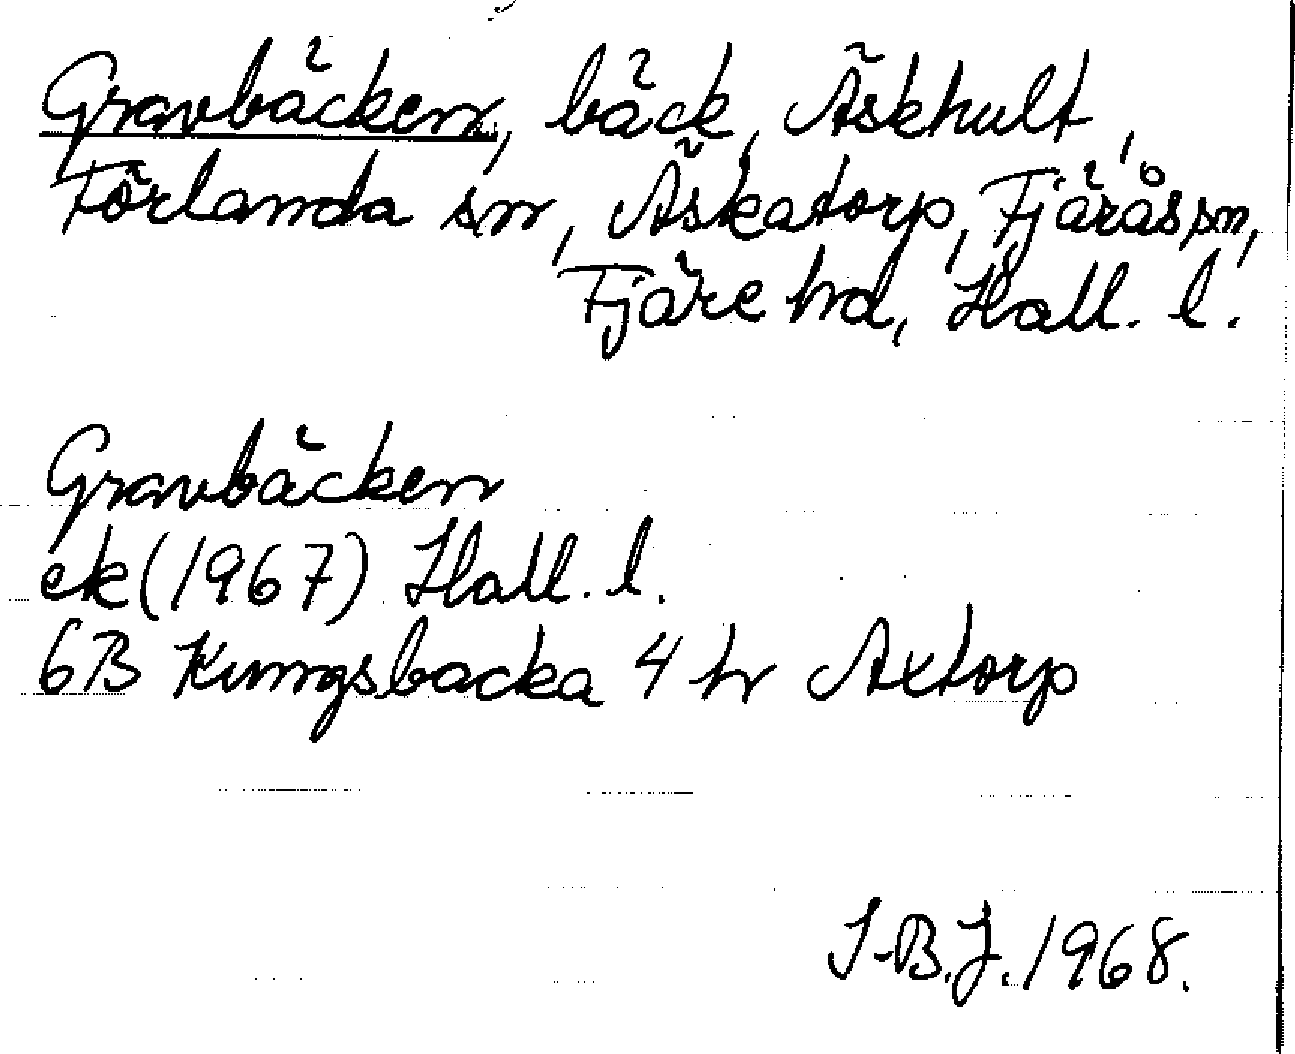 Gravbäcken, bäck, Äskhult,
Förlanda sn, Äskatorp, Fjärås sn,
Fjäre hd, Hall. l.
Gravbäcken
ek (1967) Hall. l.
6B Kungsbacka 4 hr Axtorp
I-B.J. 1968.